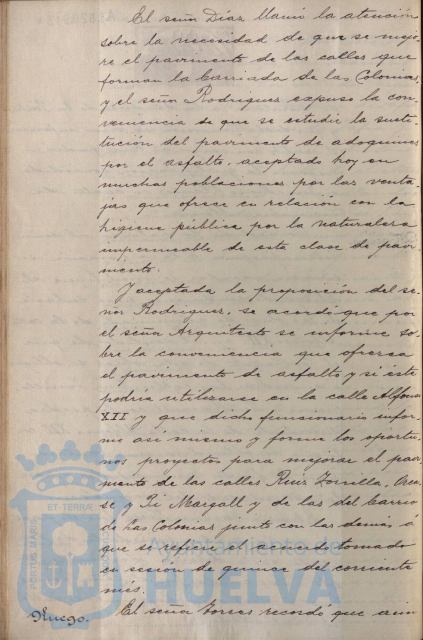 El señor Díaz llamó la atención
sobre la necesidad de que se mejo-
re el pavimento de las calles que
forman la barriada de las Colonias,
y el señor Rodriguez expuso la con-
veniencia de que se estudie la susti-
tución del pavimento de adoquines
por el asfalto, aceptado hoy en
muchas poblaciones por las venta-
jas que ofrece en relación con la
higiene pública por la naturaleza
impermeable de esta clase de pavi-
mento.
Y aceptada la proposición del se-
ñor Rodriguez, se acordó que por
el señor Arquitecto se informe so-
bre la conveniencia que ofrezca
el pavimento de asfalto y si este
podría utilizarse en la calle Alfonso
XII y que dicho funcionario infor-
me asi mismo y forme los oportu-
nos proyectos para mejorar el pavi-
mento de las calles Ruiz Zorrilla,
se y Pi Margall y de las del barrio
de Las Colonias junto con las demás á
que se refiere el acuerdo tomado
en sesión de quince del corriente
mes.
Ruego.
El señor Torres recordó que
PORTUS MARIS
ET TERRÆ
Ayuntamiento de
HUELVA